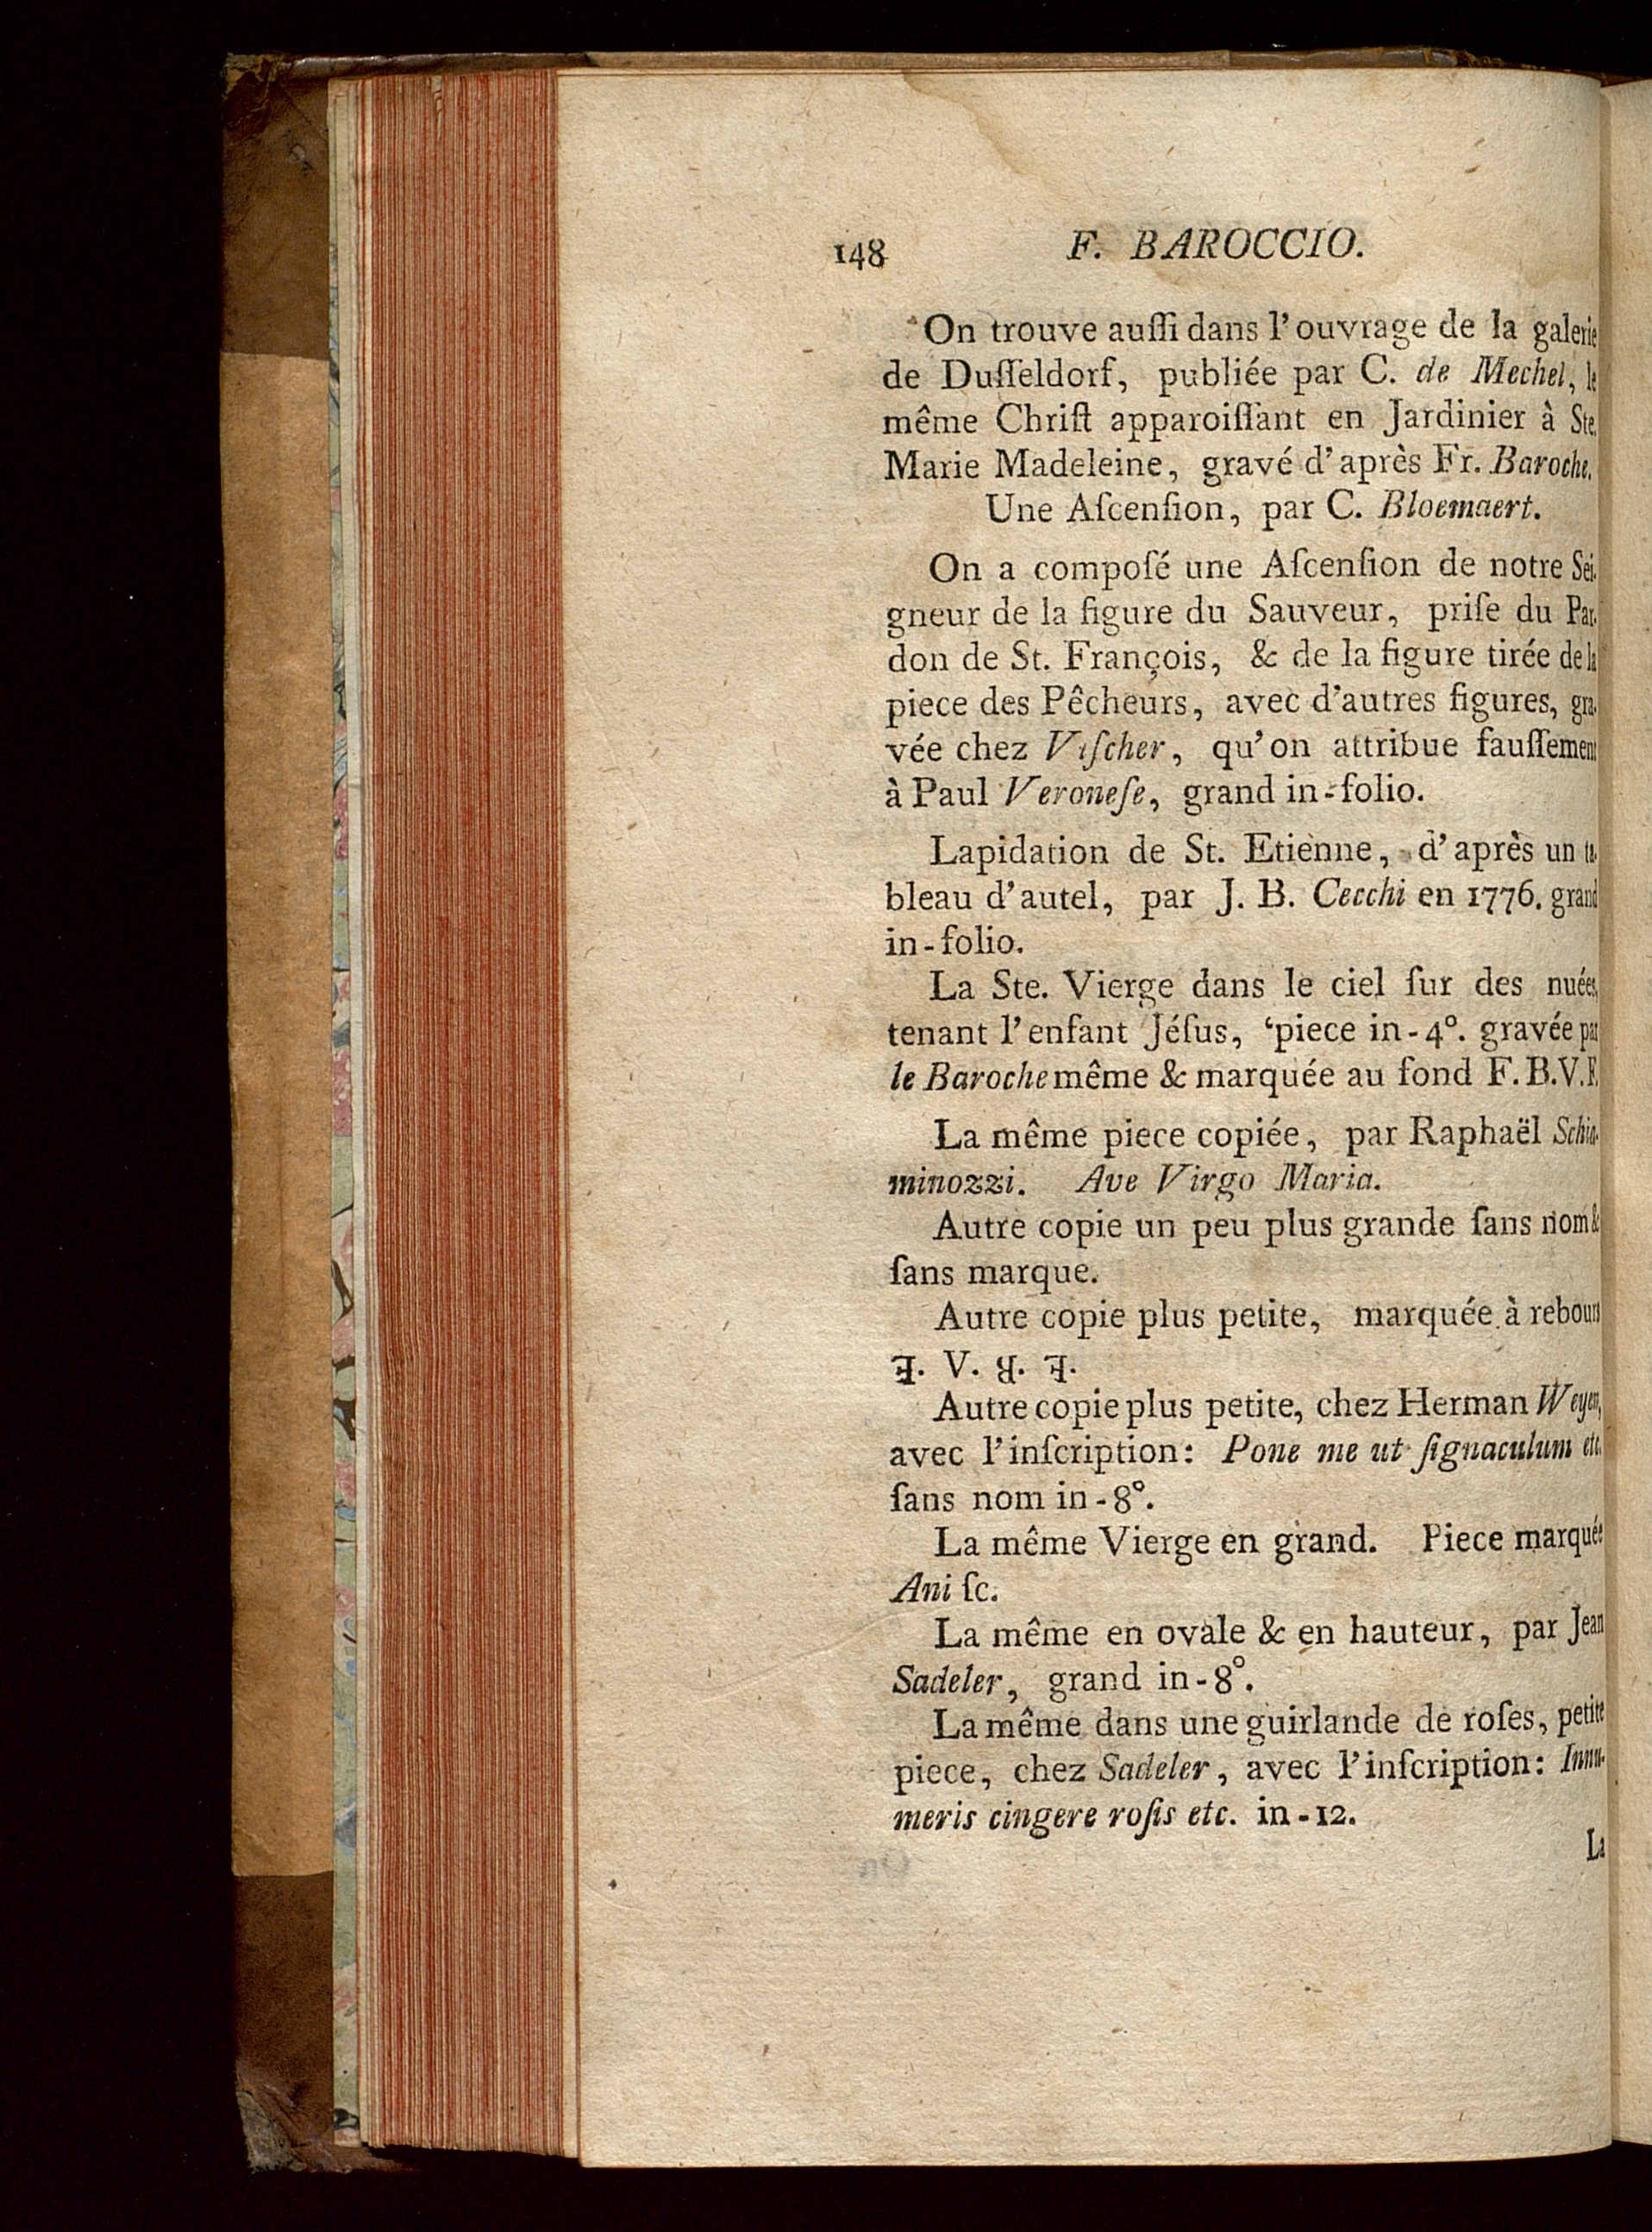 148 F. BAROCCIO.
On trouve auſſi dans l'ouvrage de la galerie
de Duſſeldorf, publiée par C. de Mechel, le
même Chriſt apparoiſſant en Jardinier à Ste.
Marie Madeleine, gravé d'après Fr. Baroche.
Une Aſcenſion, par C. Bloemaert.
On a compoſé une Aſcenſion de notre Sei-
gneur de la figure du Sauveur, priſe du Par-
don de St. François, & de la figure tirée de la
piece des Pêcheurs, avec d'autres figures, gra-
vée chez Viſcher, qu'on attribue fauſſement
à Paul Veroneſe, grand in-folio.
Lapidation de St. Etienne, d'après un ta-
bleau d'autel, par J. B. Cecchi en 1776. grand
in-folio.
La Ste. Vierge dans le ciel ſur des nuées,
tenant l'enfant Jéſus, 'piece in-4°. gravée par
le Baroche même & marquée au fond F.B.V.F.
La même piece copiée, par Raphaël Schia-
minozzi. Ave Virgo Maria.
Autre copie un peu plus grande ſans nom &
ſans marque.
Autre copie plus petite, marquée à rebours
F. V. B. F.
Autre copie plus petite, chez Herman Weyen,
avec l'inſcription: Pone me ut ſignaculum etc.
ſans nom in-8°.
La même Vierge en grand. Piece marquée
Ani ſc.
La même en ovale & en hauteur, par Jean
Sadeler, grand in-8°.
La même dans une guirlande de roſes, petite
piece, chez Sadeler, avec l'inſcription: Innu-
meris cingere roſis etc. in-12.
La